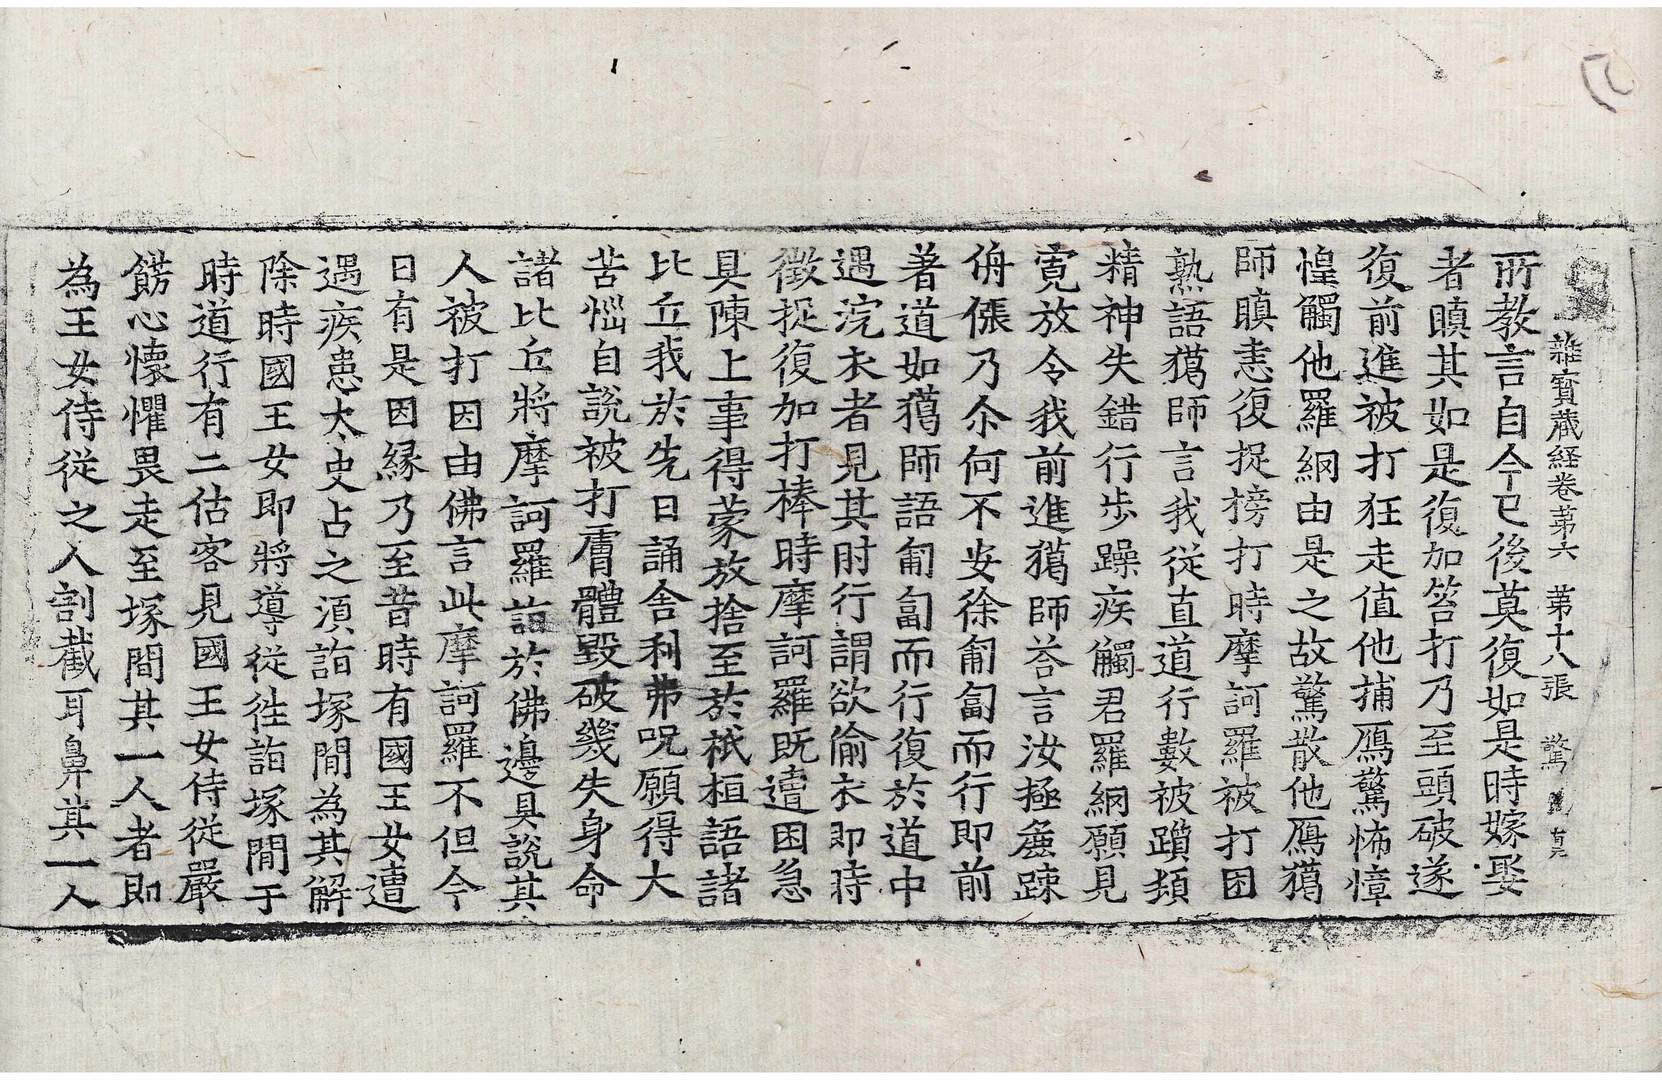 雜寶藏経卷苐六　苐十八張　驚
所教言自今已後莫復如是時嫁娶
者瞋其如是復加笞打乃至頭破遂
復前進被打狂走值他捕鴈驚怖慞
惶觸他羅網由是之故驚散他鴈獦
師瞋恚復捉搒打時摩訶羅被打困
熟語獦師言我從直道行數被躓頓
精神失錯行步躁疾觸君羅網願見
寬放令我前進獦師荅言汝極麁踈
侜倀乃尒何不安徐匍匐而行即前
著道如獦師語匍匐而行復於道中
遇浣衣者見其肘行謂欲偷衣即時
徵捉復加打棒時摩訶羅既遭困急
具陳上事得蒙放捨至於祇桓語諸
比丘我於先日誦舍利弗呪願得大
苦惱自說被打膚體毀破幾失身命
諸比丘將摩訶羅詣於佛邊具說其
人被打因由佛言此摩訶羅不但今
日有是因緣乃至昔時有國王女遭
遇疾患太史占之湏詣塚間為其解
除時國王女即將導從徃詣塚間于
時道行有二估客見國王女侍從嚴
餝心懷懼畏走至塚間其一人者即
為王女侍從之人割截耳鼻其一人